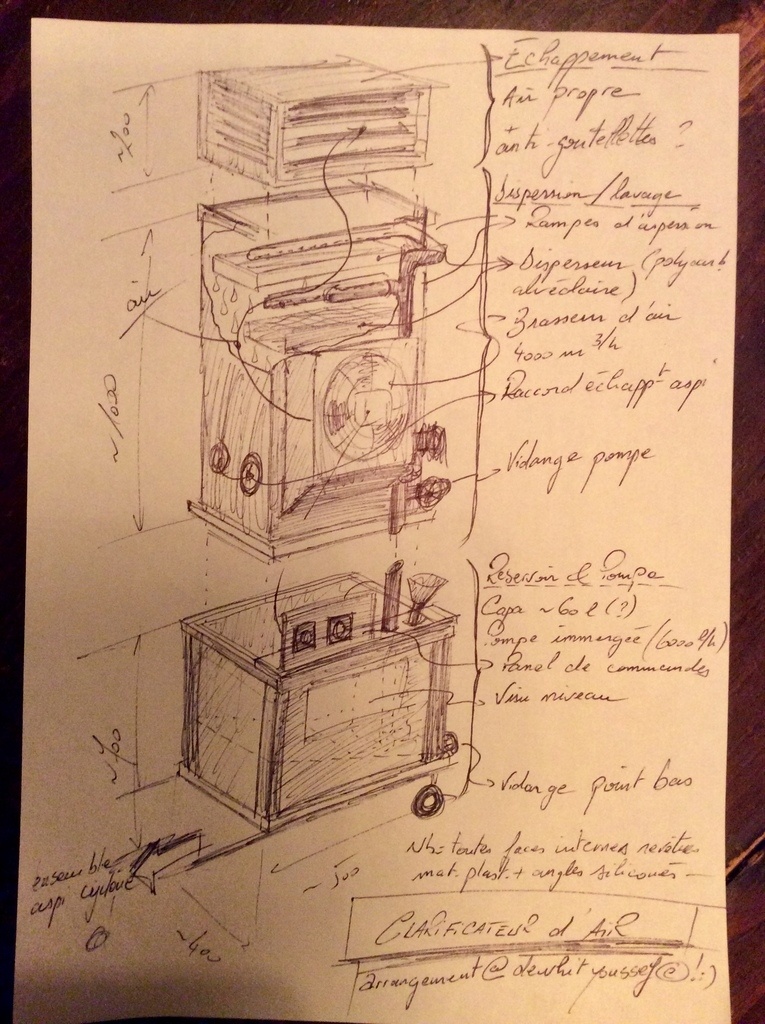 Échappement
Air propre
anti-goutelettes ?
~200
Dispersion/lavage
Rampes d'aspersion
Disperseur (polycarb.
alvéolaire)
air
Brasseur d'air
4000 m 3/h
~1000
Raccord échappt aspi
Vidange pompe
Réservoir & Pompe
Capa ~60 l (?)
Pompe immergée (6000 l/h)
Panel de commandes
Visu niveau
Vidange point bas
ensemble
aspi cyclone
~500
~400
Nb = toutes faces internes revêties
mat. plast. + angles siliconés -
CLARIFICATEUR d'AIR
arrangement @ dewhit pussey @ ! :)